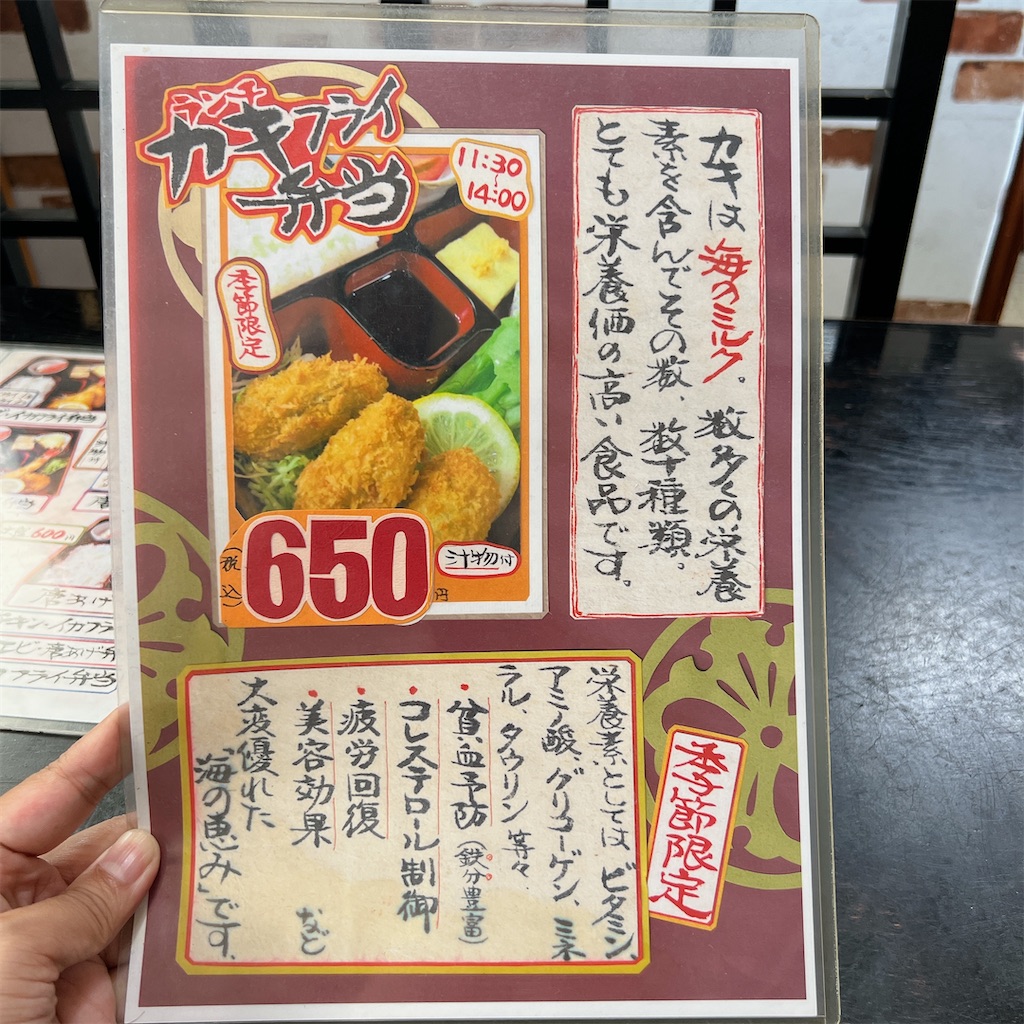 ランチ
カキフライ
弁当
11:30
〜
14:00
季節限定
(税込)
650
円
汁物付
カキは海のミルク。数多くの栄養
素を含んでその数、数十種類。
とても栄養価の高い食品です。
栄養素としては ビタミン、
アミノ酸、グリコーゲン、ミネ
ラル、タウリン 等々
・貧血予防(鉄分豊富)
・コレステロール制御
・疲労回復
・美容効果 など
大変優れた
「海の恵み」です。
季節限定
600
唐あげ
キン・イカフラ
エビ・唐あげ弁
フライ弁当